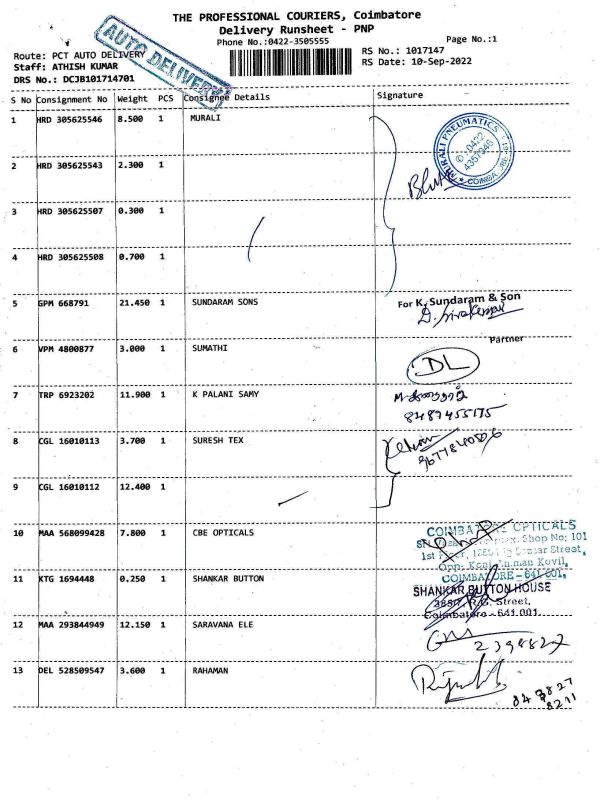 THE PROFESSIONAL COURIERS, Coimbatore
Delivery Runsheet - PNP
Phone No.:0422-3505555
Page No.:1
Route: PCT AUTO DELIVERY
RS No.: 1017147
Staff: ATHISH KUMAR
RS Date: 10-Sep-2022
DRS No.: DCJB101714701
AUTO DELIVERY
S No Consignment No Weight PCS Consignee Details Signature
1 HRD 305625546 8.500 1 MURALI
MURALI PNEUMATICS
0422
4357946
2 HRD 305625543 2.300 1
3 HRD 305625507 0.300 1
4 HRD 305625508 0.700 1
5 GPM 668791 21.450 1 SUNDARAM SONS
For K. Sundaram & Son
Partner
6 VPM 4800877 3.000 1 SUMATHI
DL
7 TRP 6923202 11.900 1 K PALANI SAMY
8487455175
8 CGL 16010113 3.700 1 SURESH TEX
9 CGL 16010112 12.400 1
10 MAA 568099428 7.800 1 CBE OPTICALS
COIMBATORE OPTICALS
Shop No: 101
1st Floor, Street,
Opp: Koni Amman Kovil,
COIMBATORE - 641 001.
11 KTG 1694448 0.250 1 SHANKAR BUTTON
SHANKAR BUTTON HOUSE
Street,
Coimbatore - 641 001.
12 MAA 293844949 12.150 1 SARAVANA ELE
2398827
13 DEL 528509547 3.600 1 RAHAMAN
8211